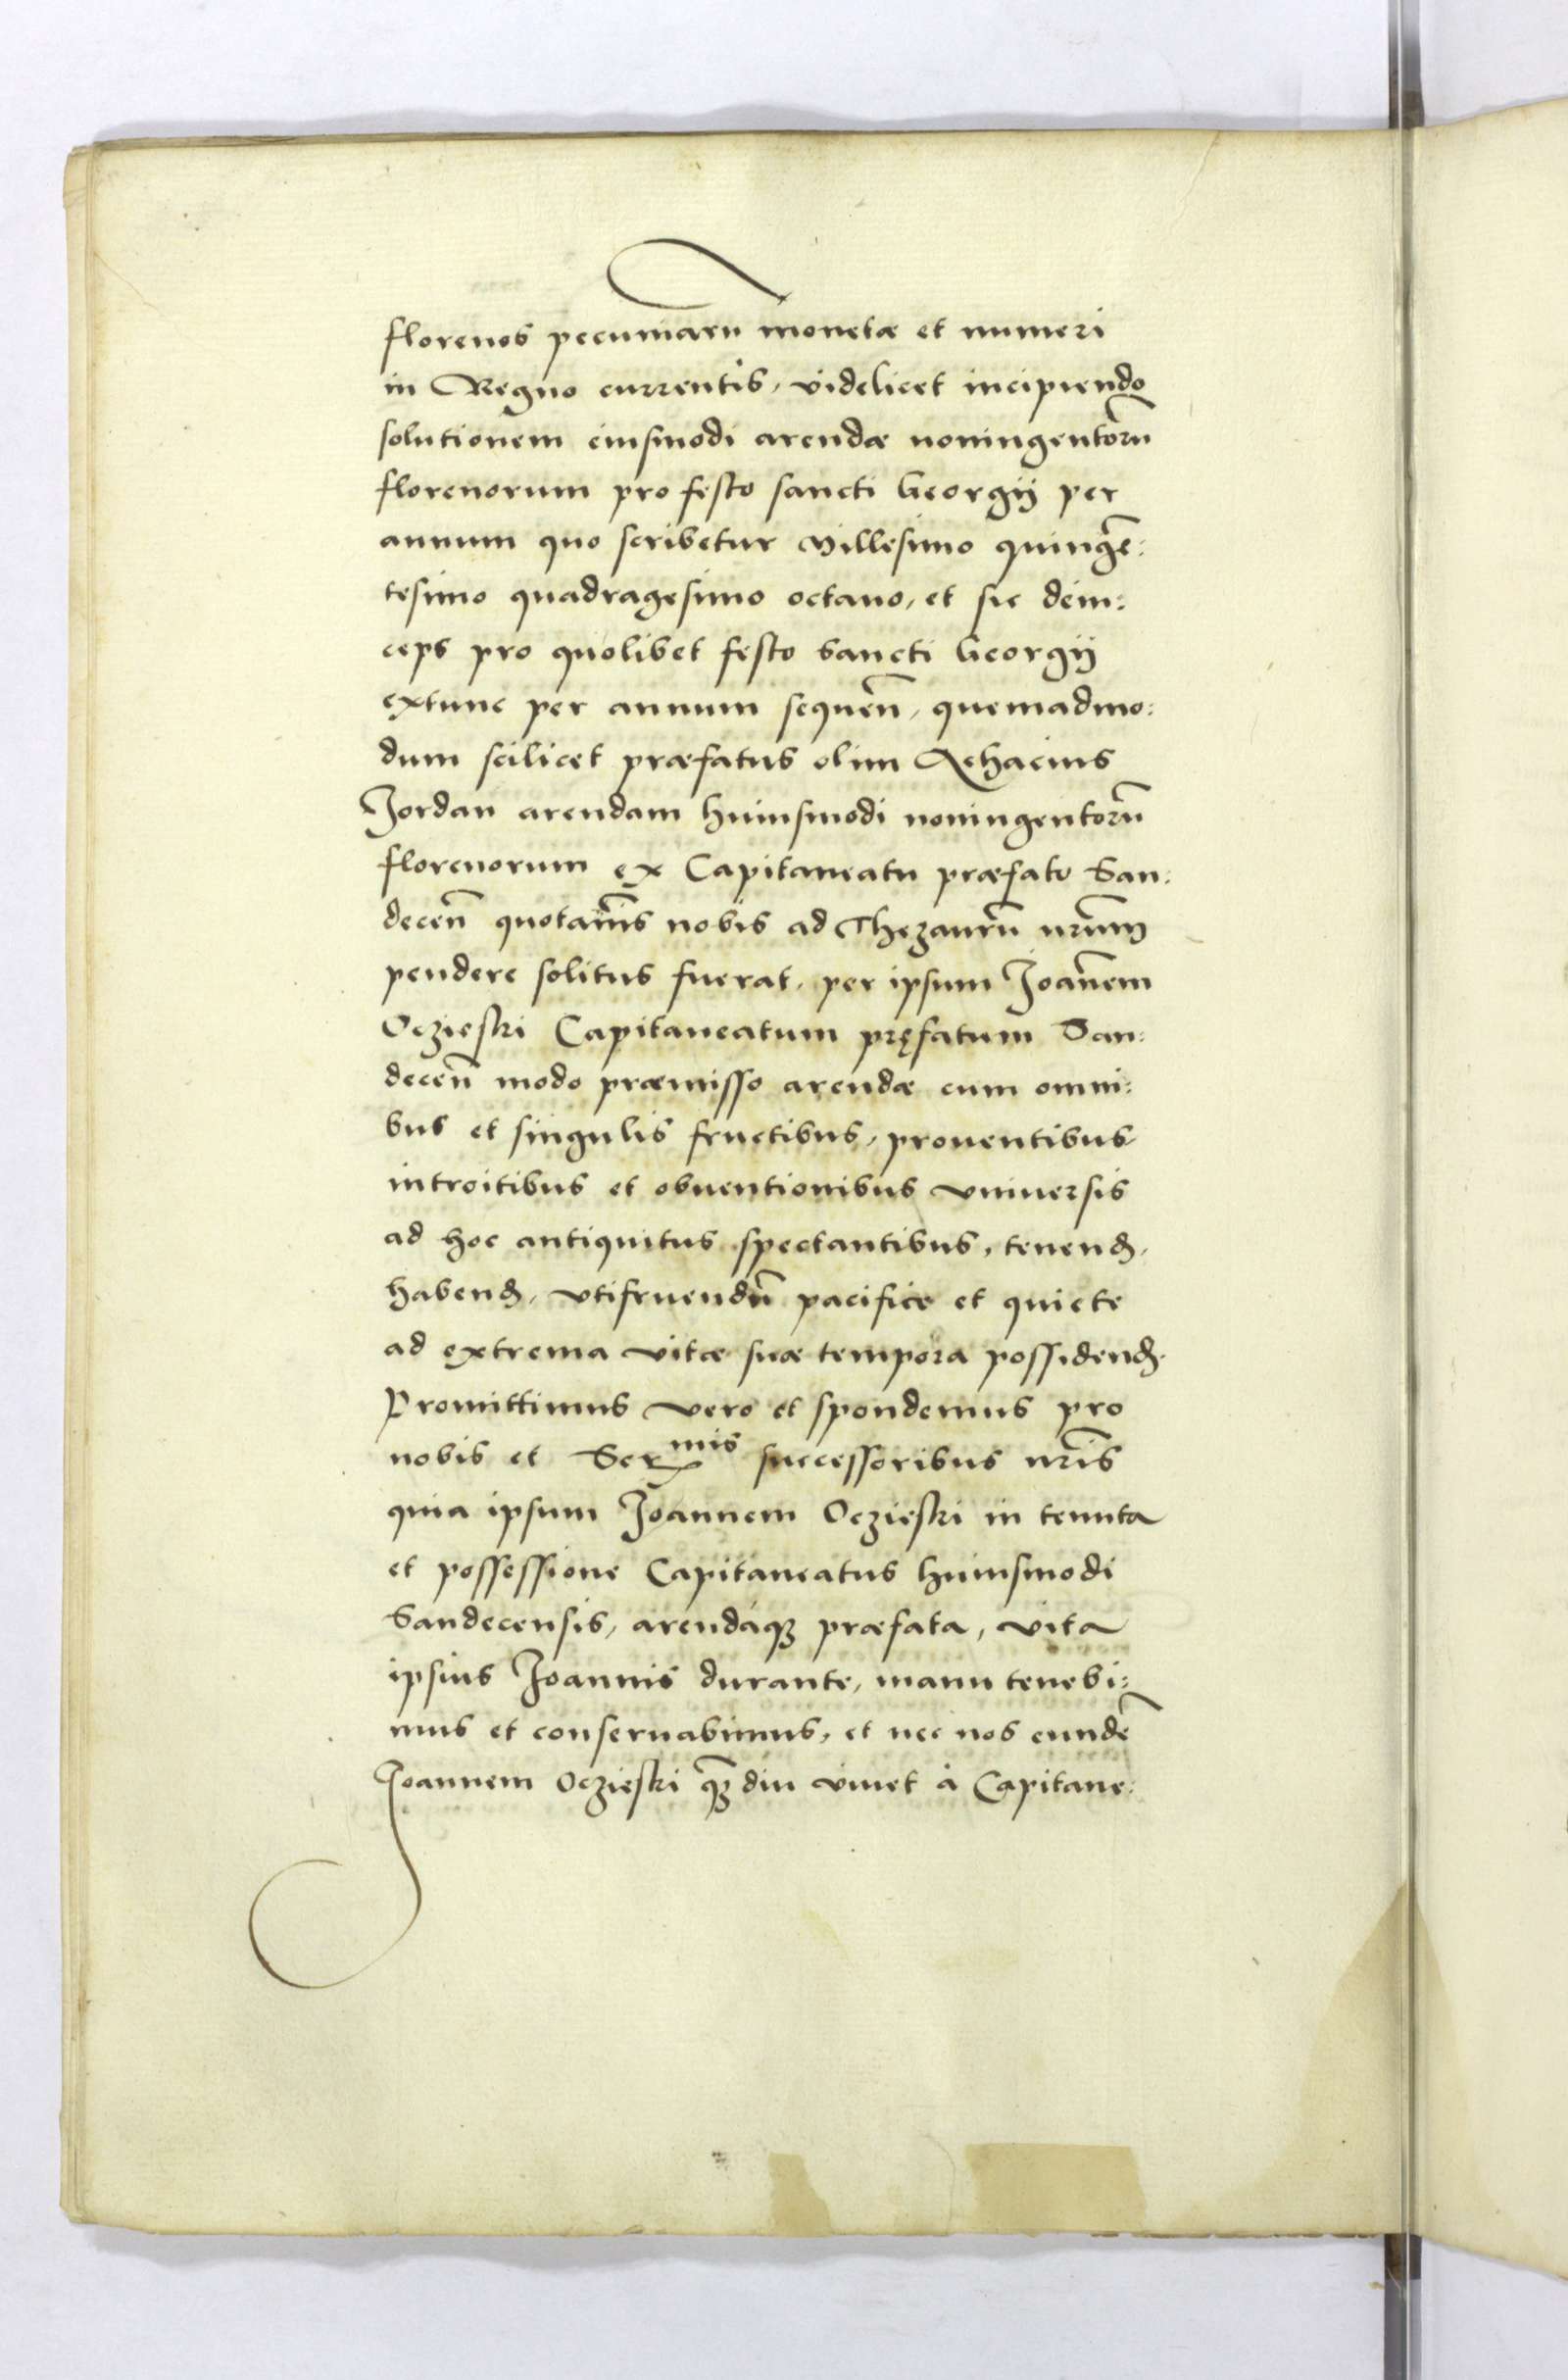 florenos pecuniarū monetæ et numeri
in Regno currentis, videlicet incipiendo
solutionem eiusmodi arendæ noningentorū
florenorum pro festo sancti Georgij per
annum quo scribetur Millesimo quingē:
tesimo quadragesimo octauo, et sic dein:
ceps pro quolibet festo Sancti Georgij
extunc per annum sequen̄, quemadmo:
dum scilicet præfatus olim Achacius
Jordan arendam huiusmodi noningentorū
florenorum ex Capitaneatu præfato San:
decen̄ quotan̄is nobis ad Thezaurū nr̄um
pendere solitus fuerat, per ipsum Joan̄em
Oczieski Capitaneatum pręfatum San:
decen̄ modo præmisso arendæ cum omni:
bus et singulis fructibus, prouentibus
introitibus et obuentionibus vniuersis
ad hoc antiquitus spectantibus, tenend.
habend. vtifruendū pacifice et quiete
ad extrema vitæ suæ tempora possidend.
Promittimus vero et spondemus pro
nobis et Ser^mis successoribus nr̄is
quia ipsum Joannem Oczieski in tenuta
et possessione Capitaneatus huiusmodi
Sandecensis, arendáq₃ præfata, vita
ipsius Joannis durante, manu tenebi:
mus et conseruabimus, et nec nos eundē
Joannem Oczieski q̄₃ diu viuet à Capitane: